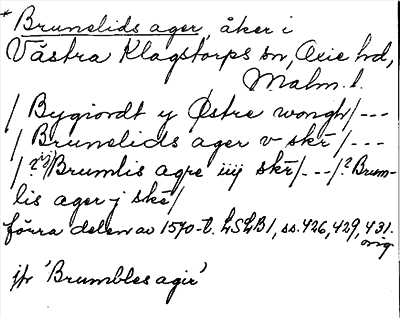 * Brunslids ager, åker i
Västra Klagstorps sn, Oxie hd,
Malm. l.
/ Bygiordt y Østre wongh/---
/ Brunslids ager v skr/---
/ Brumlis agre iiij skr/---/? Brum-
lis ager j skr/
förra delen av 1570-t. LSLB1, ss. 426, 429, 431.
orig.
jfr 'Brumbles agir'